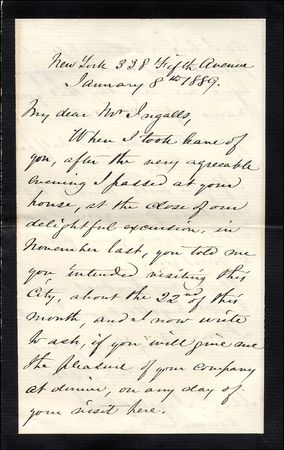 New York 338 Fifth Avenue
January 8th 1889.
My dear Mr Ingalls,
When I took leave of
you, after the very agreeable
evening I passed at your
house, at the close of our
delightful excursion, in
November last, you told me
you intended visiting this
City, about the 22nd of this
month, and I now write
to ask, if you will give me
the pleasure of your company
at dinner, on any day of
your visit here.